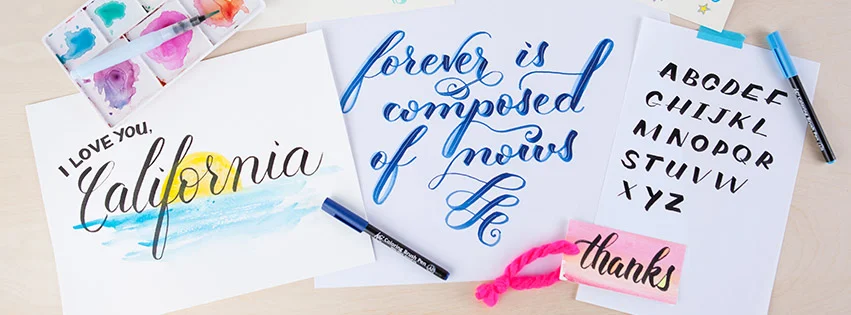 I LOVE YOU,
California
forever is
composed
of nows
ABCDEF
GHIJKL
MNOPQR
STUVW
XYZ
Coloring Brush Pen
thanks